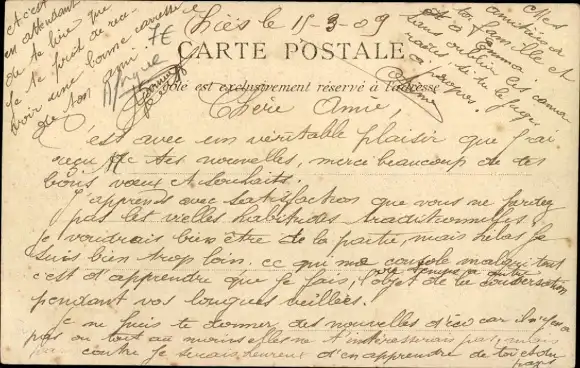 Thiès le 15-3-09
CARTE POSTALE
Côté est exclusivement réservé à l'adresse
Chère Amie,
C'est avec un véritable plaisir que j'ai
reçu de tes nouvelles, merci beaucoup de tes
bons vœux et souhaits.
J'apprends avec satisfaction que vous ne perdez
pas les vielles habitudes traditionnelles
je voudrais bien être de la partie, mais hélas je
suis bien trop loin, ce qui me console malgré tout
c'est d'apprendre que je fais, l'objet de la conversation
pendant vos longues veillées.
Je ne puis te donner des nouvelles d'ici car il n'y en a
pas ou tout au moins elles ne t'intéresserais pas, mais
par contre je serais heureux d'en apprendre de toi et du
pays
et c'est
en attendant
de te lire que
je te prie de rece-
voir une bonne caresse
de ton ami
Mes
amitiés à
ta famille et
à Emma
sans oublier les cama
rades si tu le juges
à propos.